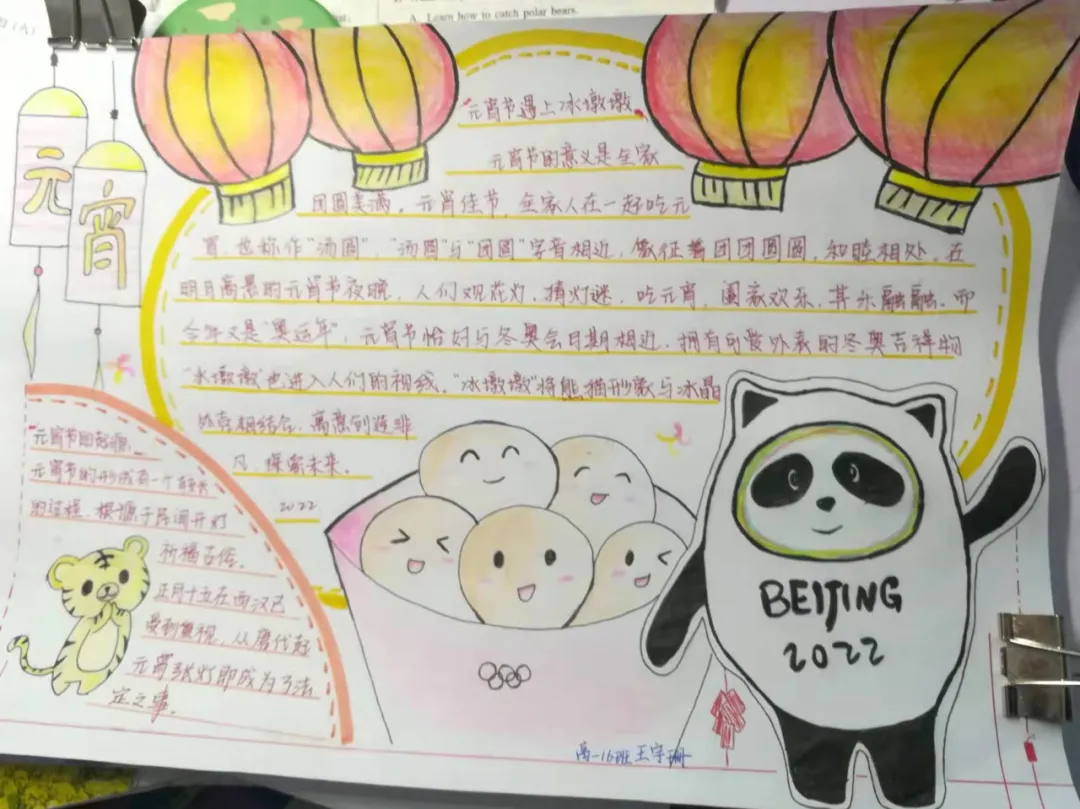 A. Learn how to catch polar bears.
元宵
元宵节遇上冰墩墩
元宵节的意义是全家
团圆美满。元宵佳节，全家人在一起吃元
宵，也称作“汤圆”，“汤圆”与“团圆”字音相近，象征着团团圆圆，和睦相处。在
明月高悬的元宵节夜晚，人们观花灯，猜灯谜，吃元宵，阖家欢乐，其乐融融。而
今年又是“奥运年”，元宵节恰好与冬奥会日期相近，拥有可爱外表的冬奥吉祥物
“冰墩墩”也进入人们的视线。“冰墩墩”将熊猫形象与冰晶
外壳相结合，寓意创造非
凡，探索未来。
2022
元宵节的起源
元宵节的形成有一个较长
的过程，根源于民间开灯
祈福古俗。
正月十五在西汉已
受到重视，从唐代起
元宵张灯即成为了法
定之事。
BEIJING
2022
高一16班 王宇珊